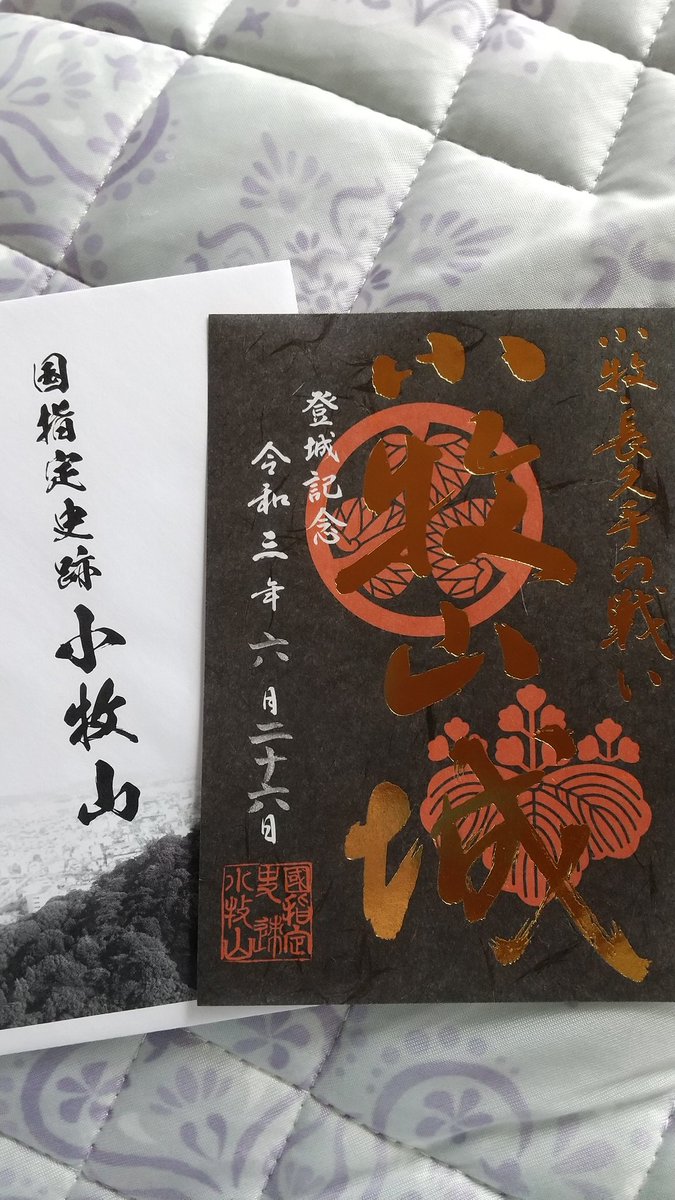 国指定史跡 小牧山
小牧・長久手の戦い
小牧山城
登城記念
令和三年六月二十六日
國指定
史跡
小牧山